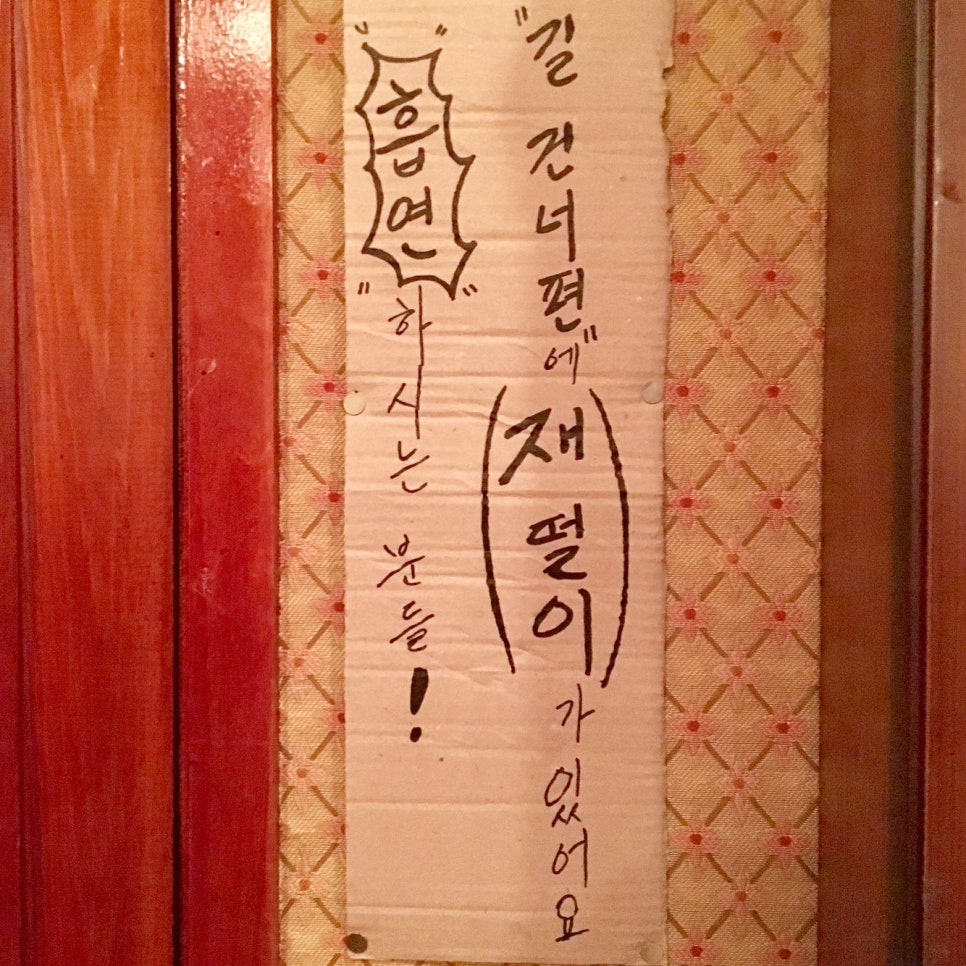 "흡연"하시는 분들!
"길 건너편에" (재떨이)가 있어요